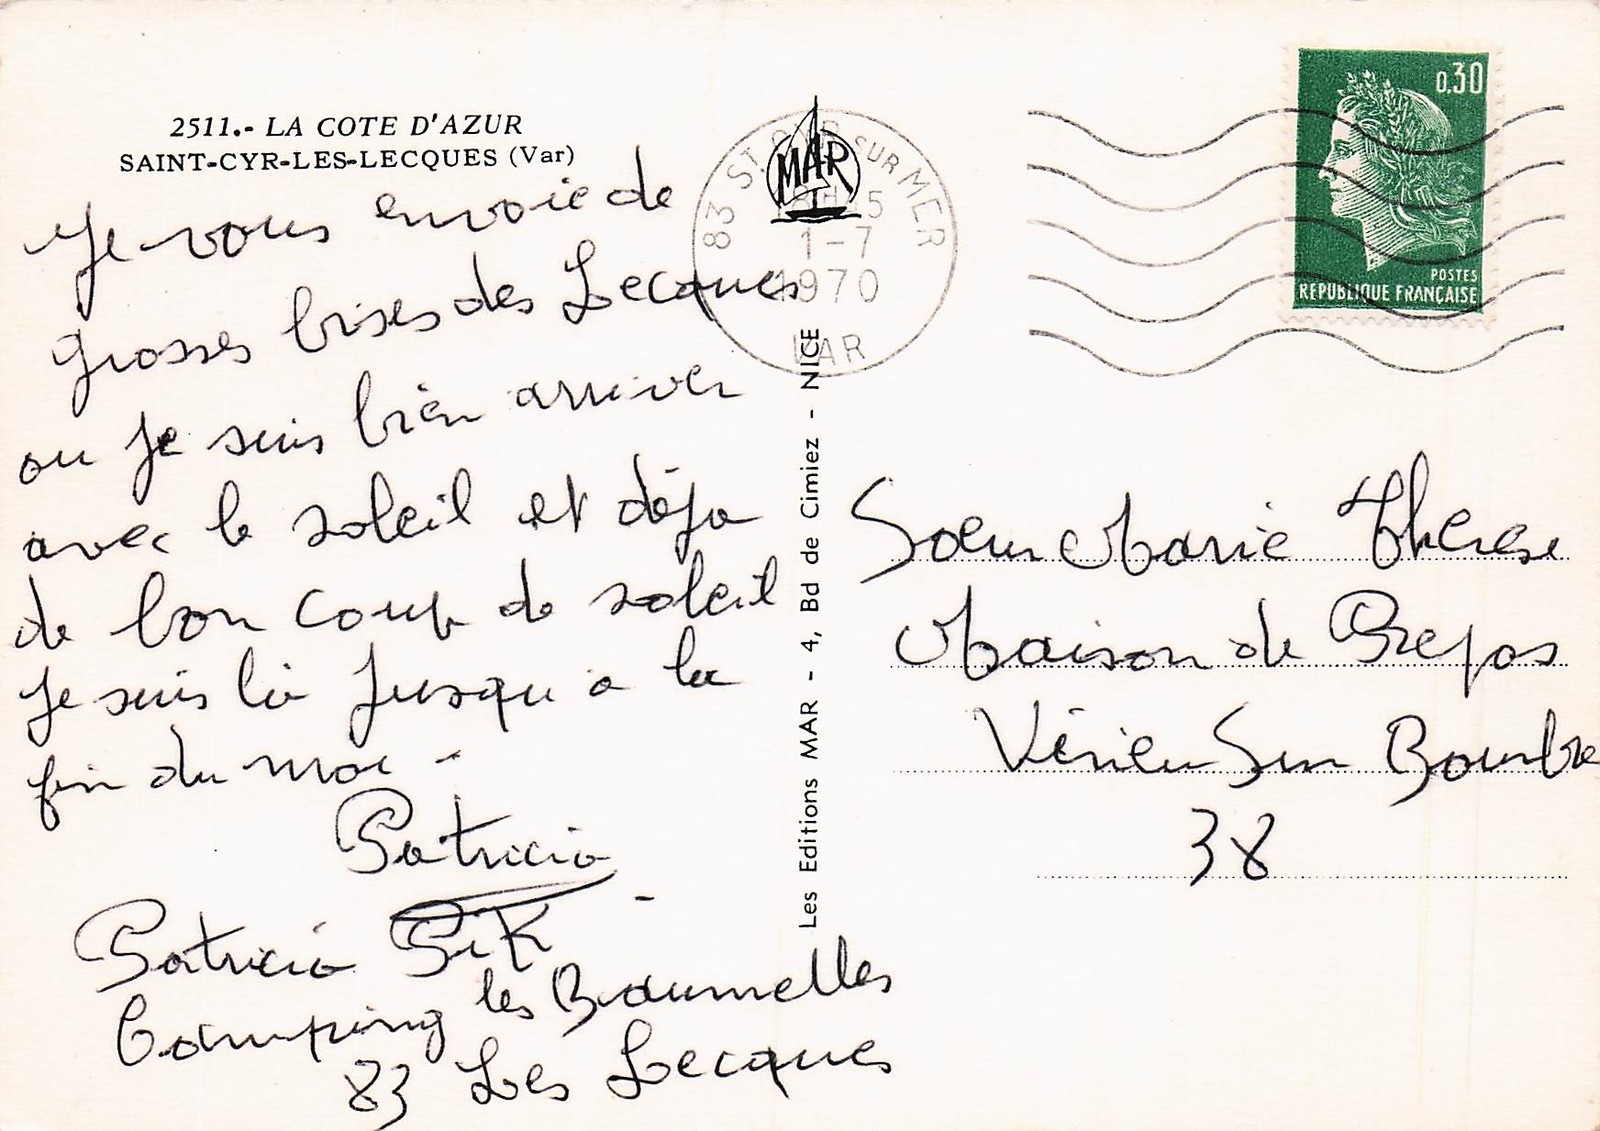 2511.- LA COTE D'AZUR
SAINT-CYR-LES-LECQUES (Var)
Je vous envoie de
grosses bises des Lecques
ou je suis bien arriver
avec le soleil et déja
de bon coup de soleil
Je suis là jusqu'a la
fin du moi -
Patricia
Patricia
Camping les Baumelles
83 Les Lecques
MAR
83 ST CYR SUR MER
1-7
1970
VAR
Les Editions MAR - 4, Bd de Cimiez - NICE
0,30
POSTES
REPUBLIQUE FRANÇAISE
Soeur Marie Therese
Maison de Repos
Sur Bourbre
38